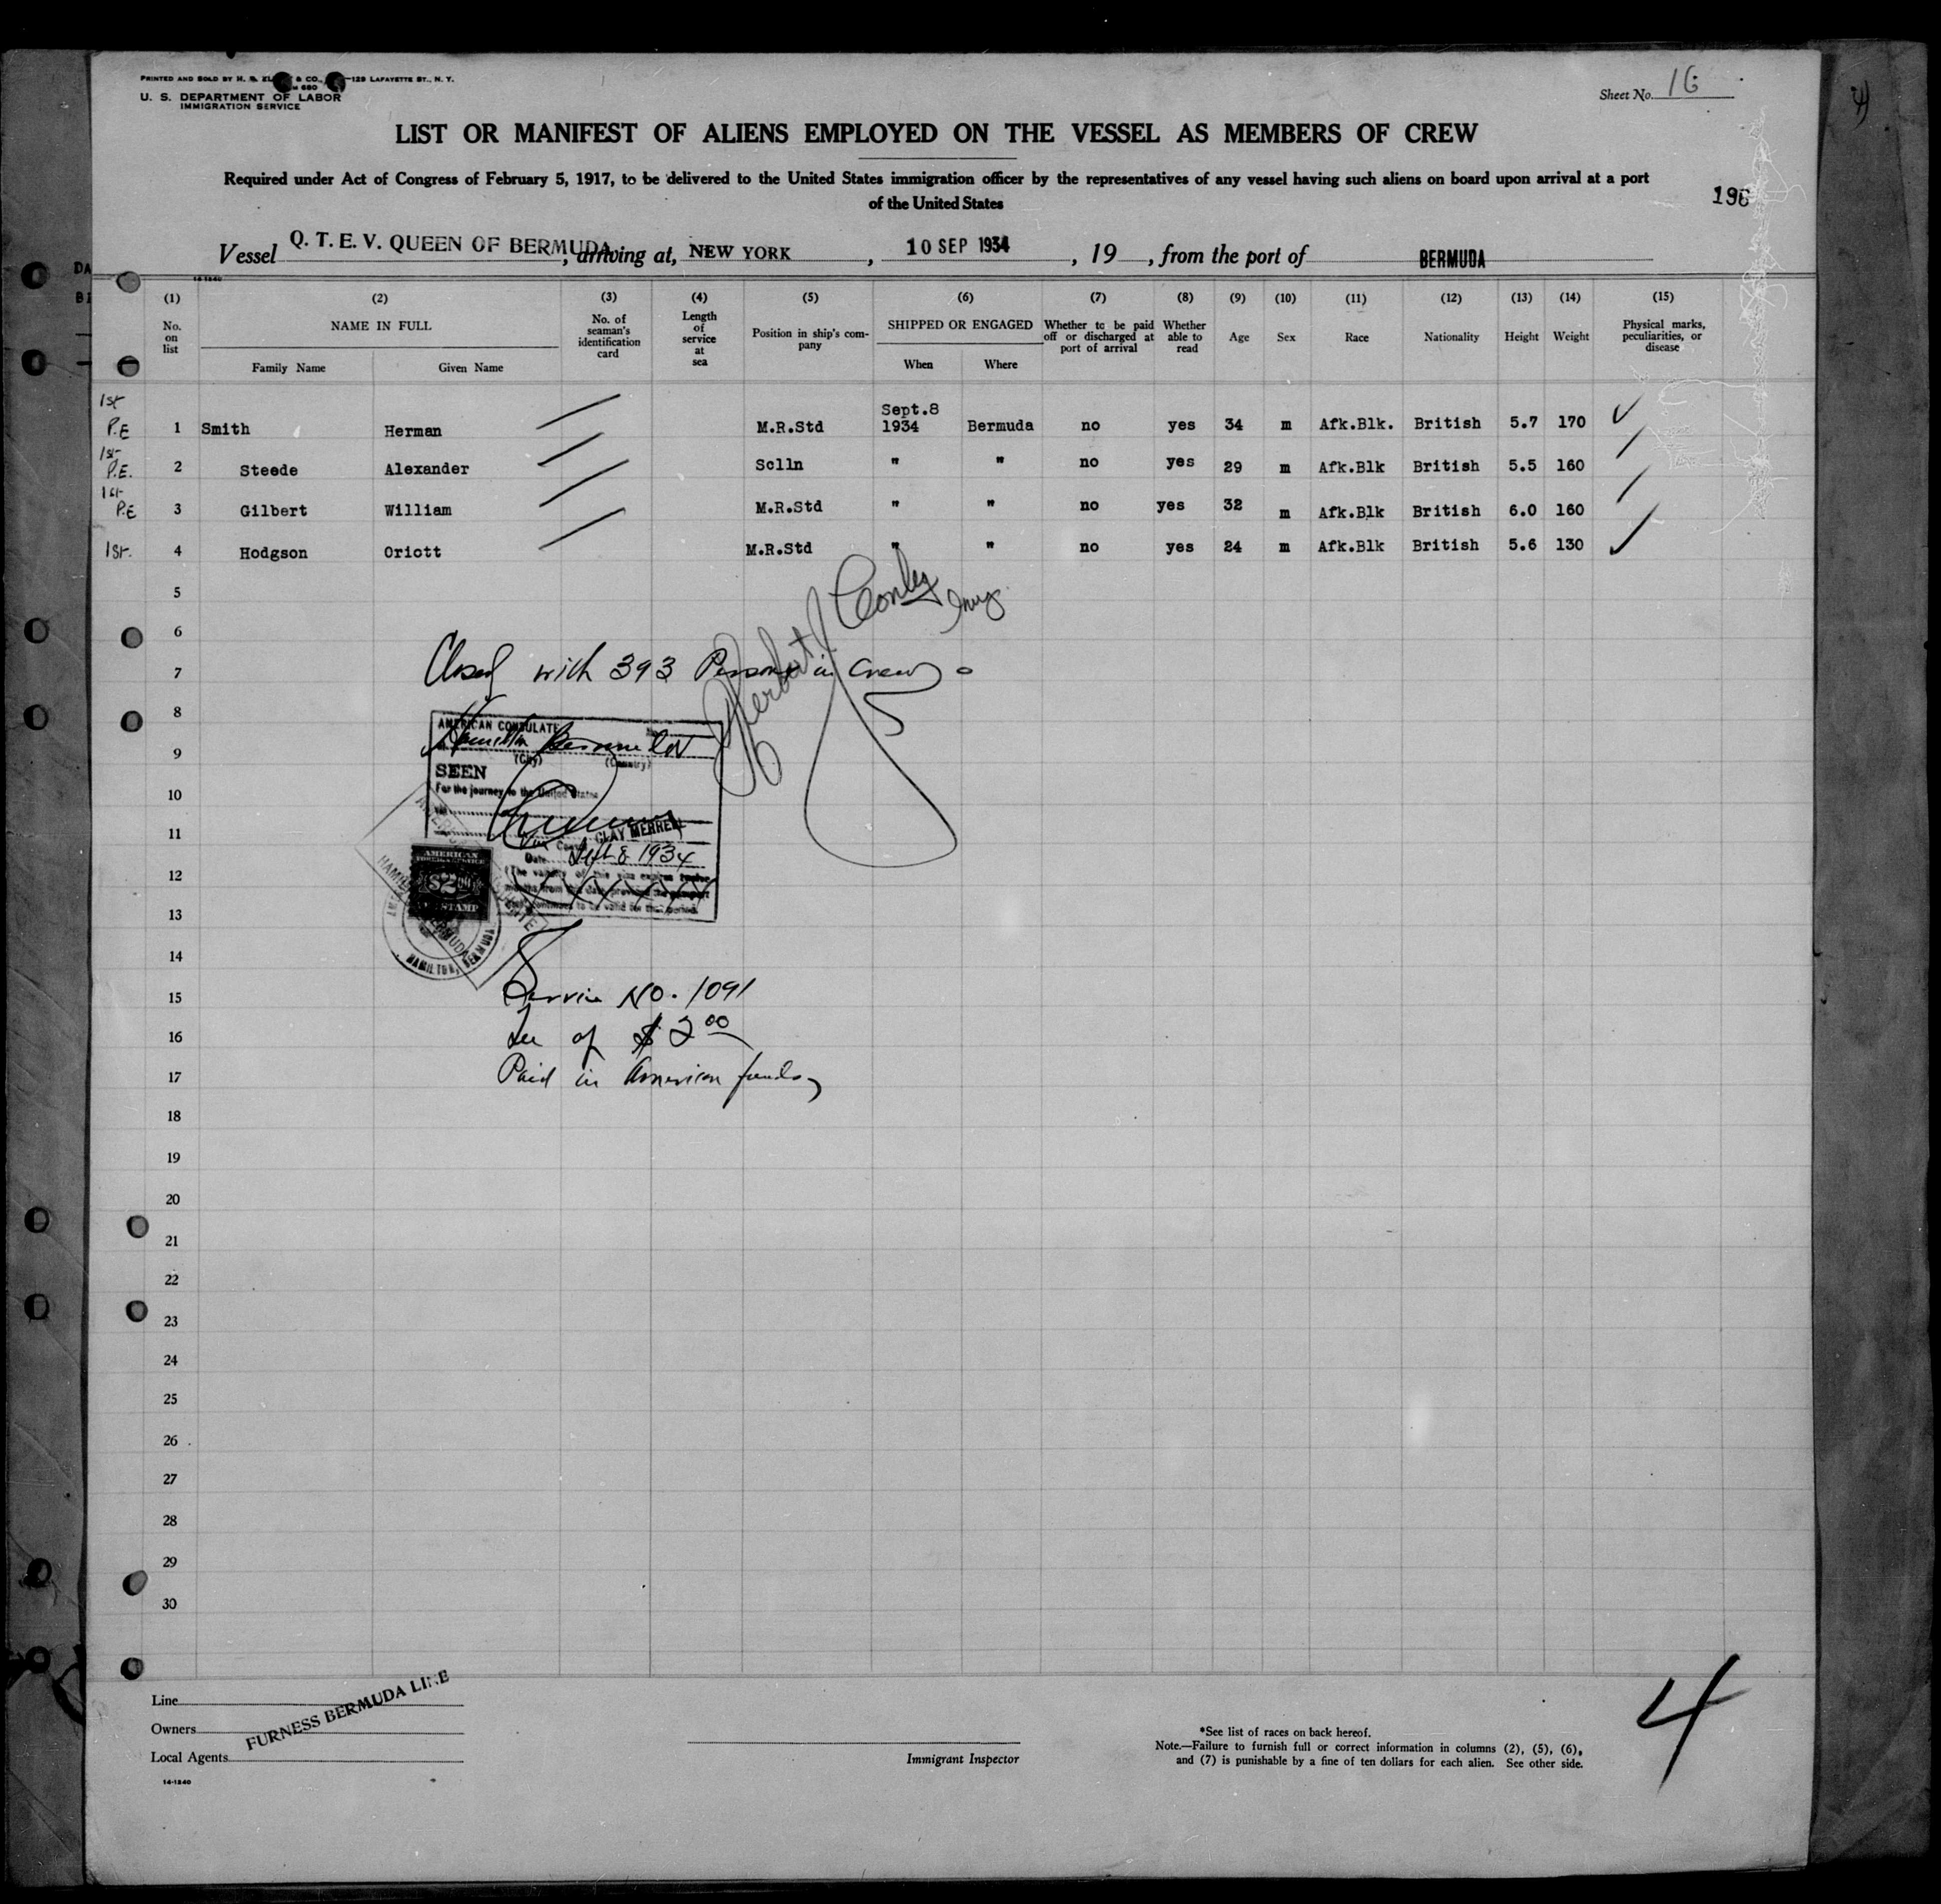 PRINTED AND SOLD BY H. & CO., 129 LAFAYETTE ST., N. Y.
U. S. DEPARTMENT OF LABOR
IMMIGRATION SERVICE
Sheet No. 16
LIST OR MANIFEST OF ALIENS EMPLOYED ON THE VESSEL AS MEMBERS OF CREW
Required under Act of Congress of February 5, 1917, to be delivered to the United States immigration officer by the representatives of any vessel having such aliens on board upon arrival at a port
of the United States
Vessel Q. T. E. V. QUEEN OF BERMUDA, arriving at, NEW YORK, 10 SEP 1934, 19, from the port of BERMUDA
14-1240
(1) (2) (3) (4) (5) (6) (7) (8) (9) (10) (11) (12) (13) (14) (15)
No. on list NAME IN FULL Family Name Given Name No. of seaman's identification card Length of service at sea Position in ship's company SHIPPED OR ENGAGED When Where Whether to be paid off or discharged at port of arrival Whether able to read Age Sex Race Nationality Height Weight Physical marks, peculiarities, or disease
1st P.E 1 Smith Herman M.R.Std Sept.8 1934 Bermuda no yes 34 m Afk.Blk. British 5.7 170
1st P.E. 2 Steede Alexander Sclln " " no yes 29 m Afk.Blk British 5.5 160
1st P.E 3 Gilbert William M.R.Std " " no yes 32 m Afk.Blk British 6.0 160
1st. 4 Hodgson Oriott M.R.Std " " no yes 24 m Afk.Blk British 5.6 130
5
6
Closed with 393 Persons in Crew
7
8
AMERICAN CONSULATE
Hamilton Bermuda
9
(City) (Country)
SEEN
For the journey to the United States
10
11
CLAY MERRELL
Date Sept 8 1934
12
AMERICAN FOREIGN SERVICE
$2.00
STAMP
13
HAMILTON, BERMUDA
14
15 Service No. 1091
16 Fee of $2.00
17 Paid in American funds
18
19
20
21
22
23
24
25
26
27
28
29
30
Line
Owners FURNESS BERMUDA LINE
Local Agents
14-1240
Immigrant Inspector
*See list of races on back hereof.
Note.—Failure to furnish full or correct information in columns (2), (5), (6),
and (7) is punishable by a fine of ten dollars for each alien. See other side.
4